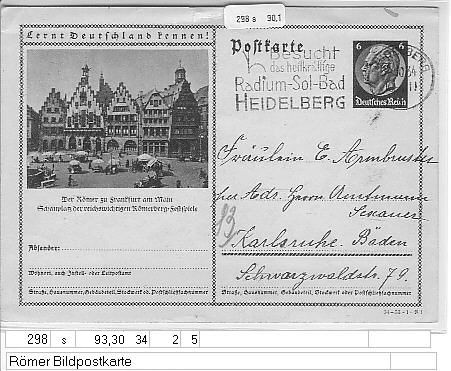 298 s 90,1
Lernt Deutschland kennen!
Postkarte
Besucht
das heilkräftige
Radium-Sol-Bad
HEIDELBERG
6 6
Deutsches Reich
Der Römer zu Frankfurt am Main
Schauplatz der reichswichtigen Römerberg-Festspiele
Absender:
Wohnort, auch Zustell- oder Leitpostamt
Straße, Hausnummer, Gebäudeteil, Stockwerk od. Postschließfachnummer
Fräulein E. Armbruster
Adr. Herrn Amtmann
Karlsruhe. Baden
Schwarzwaldstr. 79.
Straße, Hausnummer, Gebäudeteil, Stockwerk oder Postschließfachnummer
298 s 93,30 34 2 5
Römer Bildpostkarte